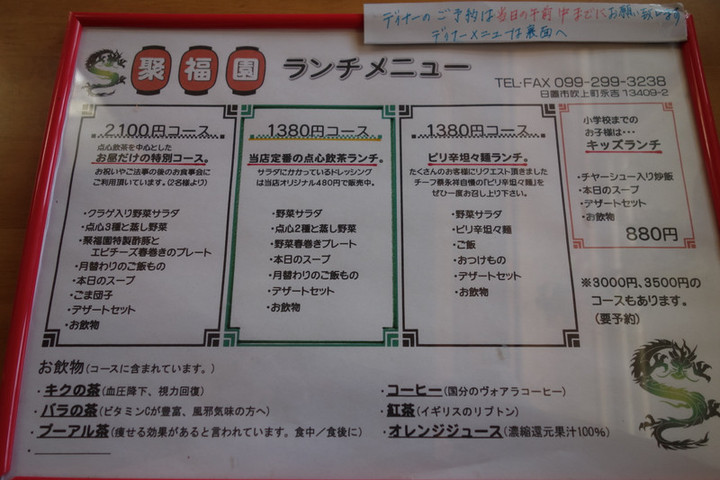 ディナーのご予約は当日の午前中までにお願い致します
ディナーメニューは裏面へ
聚福園 ランチメニュー
TEL・FAX 099-299-3238
日置市吹上町永吉13409-2
2,100円コース
点心飲茶を中心とした
お昼だけの特別コース。
お祝いやご法事の後のお食事会に
ご利用頂いています。(2名様より)
・クラゲ入り野菜サラダ
・点心3種と蒸し野菜
・聚福園特製酢豚と
エビチーズ春巻きのプレート
・月替わりのご飯もの
・本日のスープ
・ごま団子
・デザートセット
・お飲物
1380円コース
当店定番の点心飲茶ランチ。
サラダにかかっているドレッシング
は当店オリジナル480円で販売中。
・野菜サラダ
・点心2種と蒸し野菜
・野菜春巻きプレート
・本日のスープ
・月替わりのご飯もの
・デザートセット
・お飲物
1380円コース
ピリ辛坦々麺ランチ。
たくさんのお客様にリクエスト頂きました
チーフ蔡永祥自慢の『ピリ辛坦々麺』を
ぜひ一度お召し上り下さい。
・野菜サラダ
・ピリ辛坦々麺
・ご飯
・おつけもの
・デザートセット
・お飲物
小学校までの
お子様は…
キッズランチ
・チャーシュー入り炒飯
・本日のスープ
・デザートセット
・お飲物
880円
※3000円、3500円の
コースもあります。
(要予約)
お飲物(コースに含まれています。)
・キクの茶(血圧降下、視力回復)
・バラの茶(ビタミンCが豊富、風邪気味の方へ)
・プーアル茶(痩せる効果があると言われています。食中/食後に)
・コーヒー(国分のヴォアラコーヒー)
・紅茶(イギリスのリプトン)
・オレンジジュース(濃縮還元果汁100%)